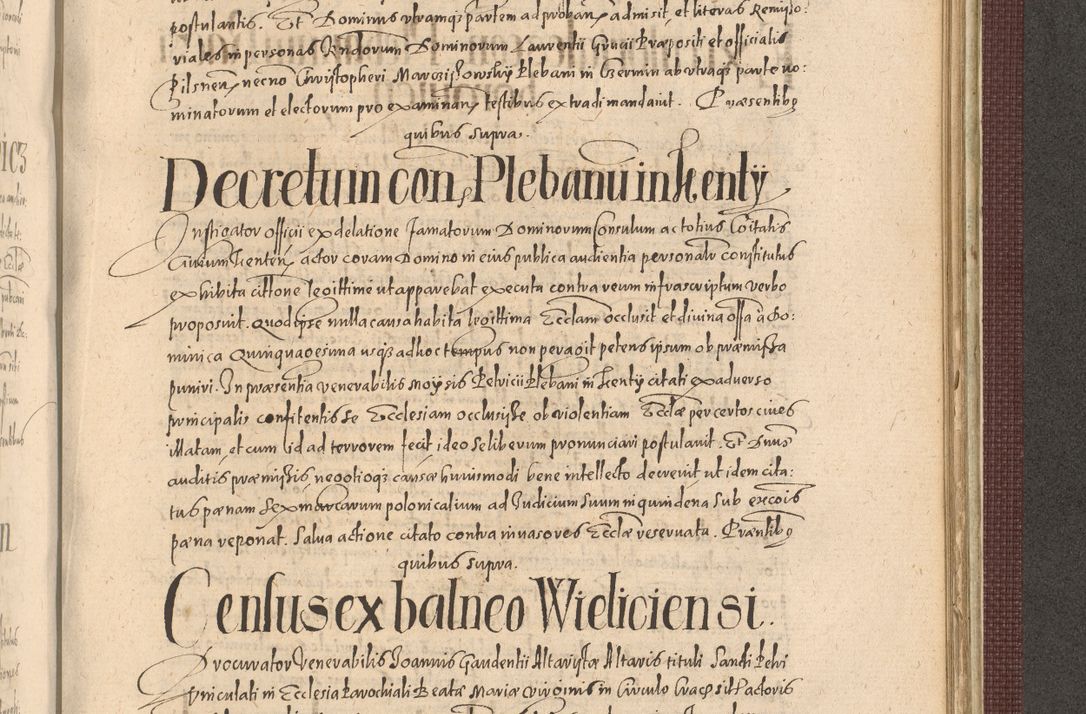 postulantis. Et Dominus utramqз partem ad proban admisit, et literas Remisso:
riales in personas Vndorum Dominorum Laurentii Gracii Præpositi et officialis
Pilsnen necno Christopheri Marczissowskÿ Plebani in Czermin ab utraqз parte no:
minatorum et electorum pro examinan testibus extradi mandavit. Præsentibꝯ
quibus supra.
Decretum con Plebanū in Kentÿ
Instigator officii ex delatione famatorum Dominorum Consulum ac totius Coitatis
Civium Kenten actor coram Domino in eius publica audientia personalr constitutus
exhibita cittone legittime ut apparebat executa contra reum infrascriptum verbo
proposuit. Quod ipse nulla causa habita legittima Eccłam occlusit et divina offa à Do:
minica Quinquagesima usqз ad hoc tempus non peragit petens ipsum ob præmissa
puniri. In præsentia venerabilis Moysis Petricii Plebani in Kentÿ citati ex adverso
principalis confitentis se Ecclesiam occlusisse ob violentiam Ecclæ per certos cives
illatam, et cum id ad terrorem fecit ideo se liberum pronunciari postulavit. Et Dnus
auditis præmissis, negotioqз causæ huiusmodi bene intellecto decrevit ut idem cita:
tus pænam sex marcarum polonicalium ad Iudicium suum in quindena sub excois
pæna reponat. Salva actione citato contra invasores Ecclæ reservata. Præntibꝯ
quibus supra.
Census ex balneo Wieliciensi.
Procurator Venerabilis Joannis Gaudentii Altaristæ Altaris tituli Sancti Petri
Vinculati in Ecclesia Parochiali Beatæ Mariæ virginis in Circulo Crac sitæ actoris